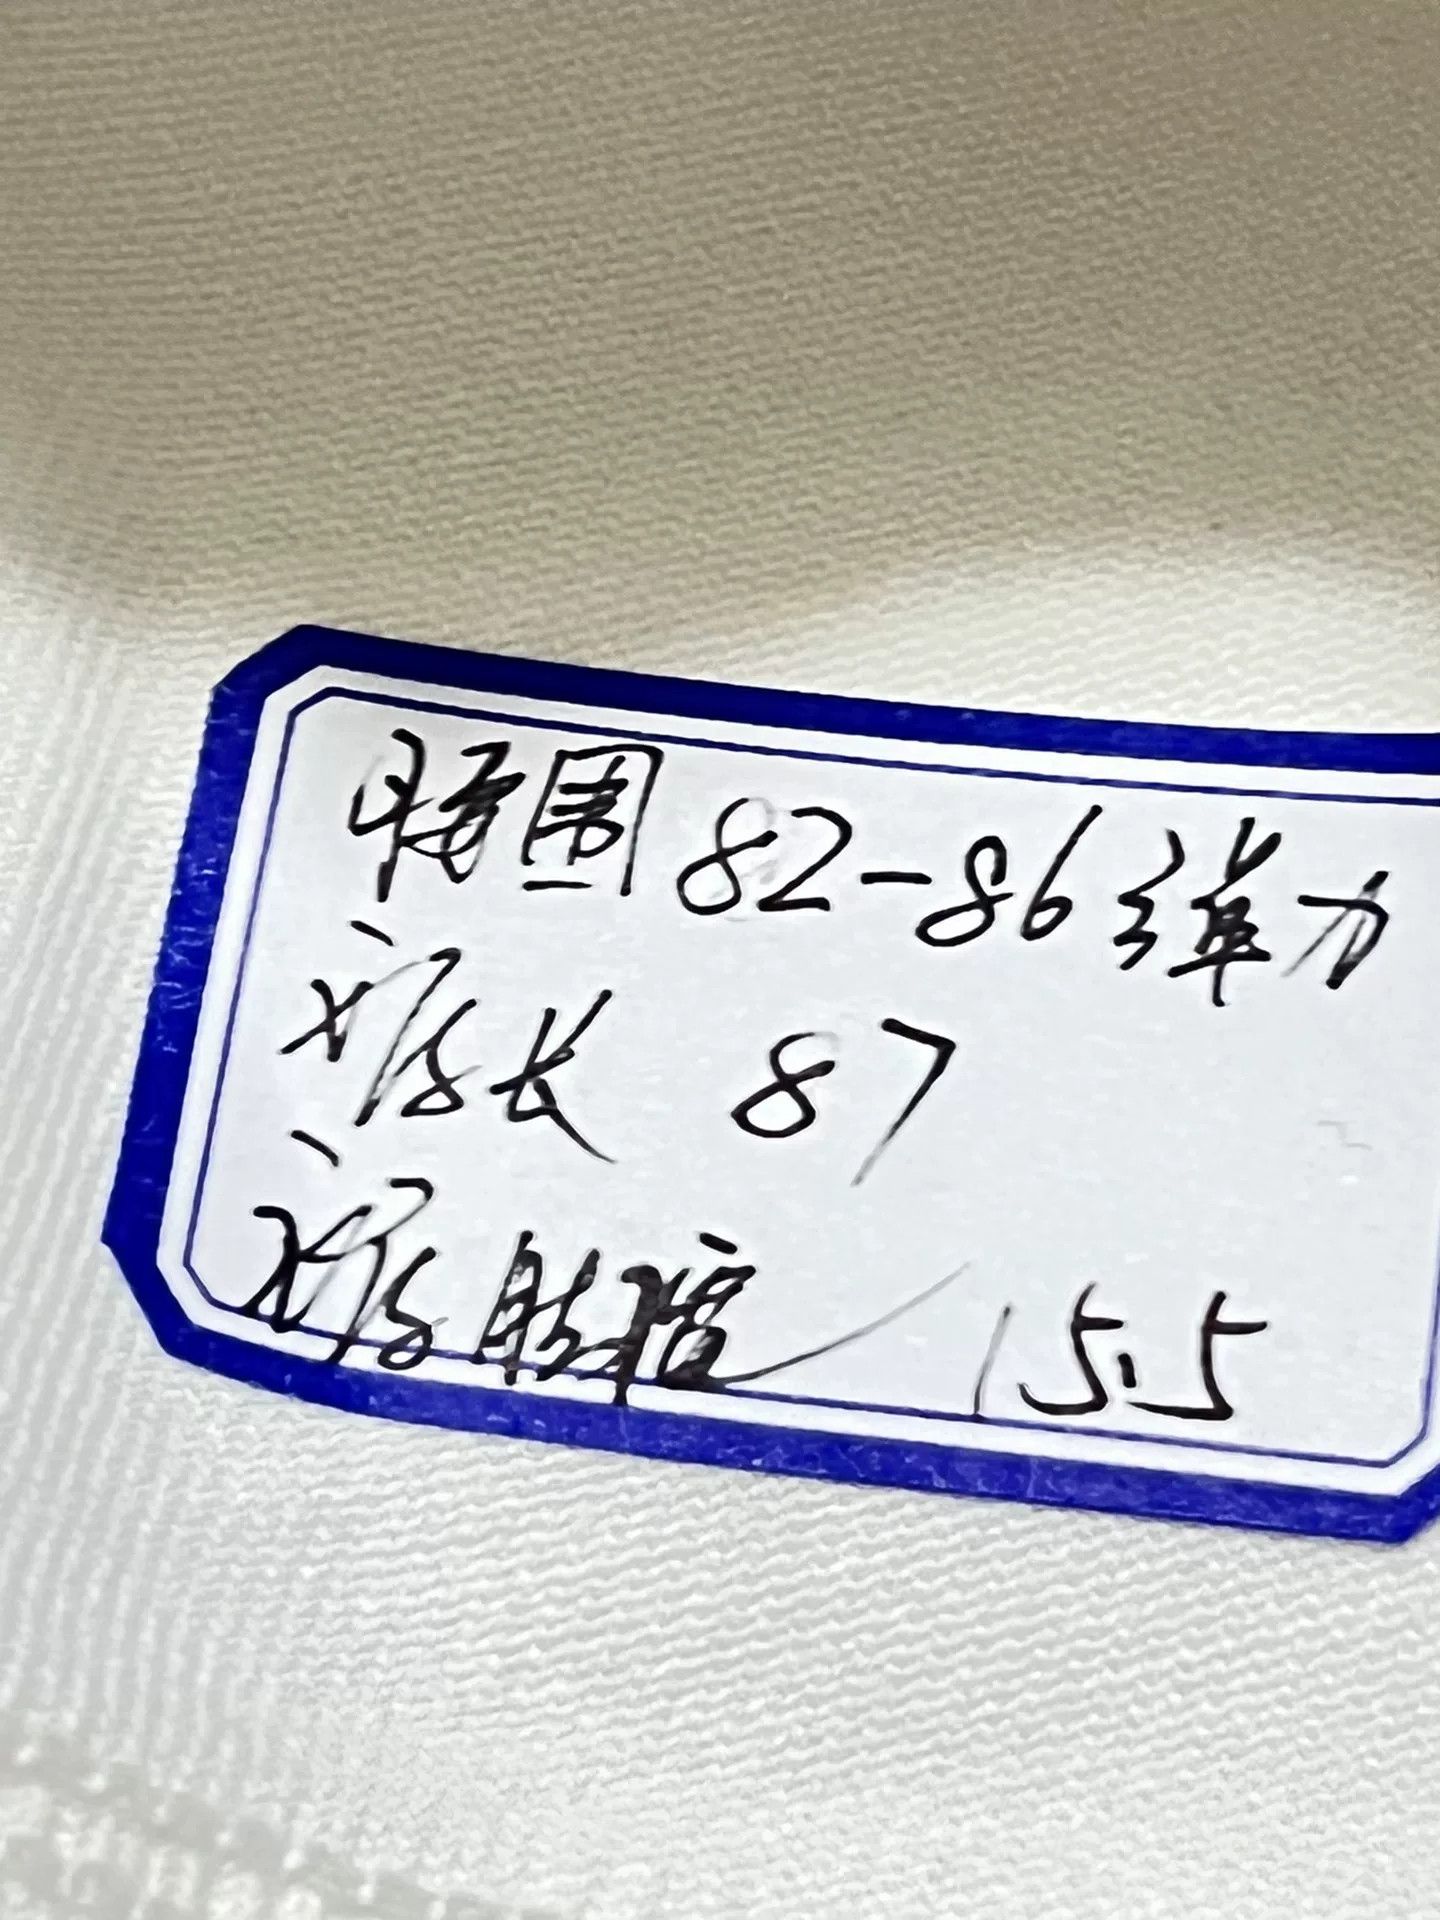 腰围82-86弹力
裤长 87
裤脚宽 15.5